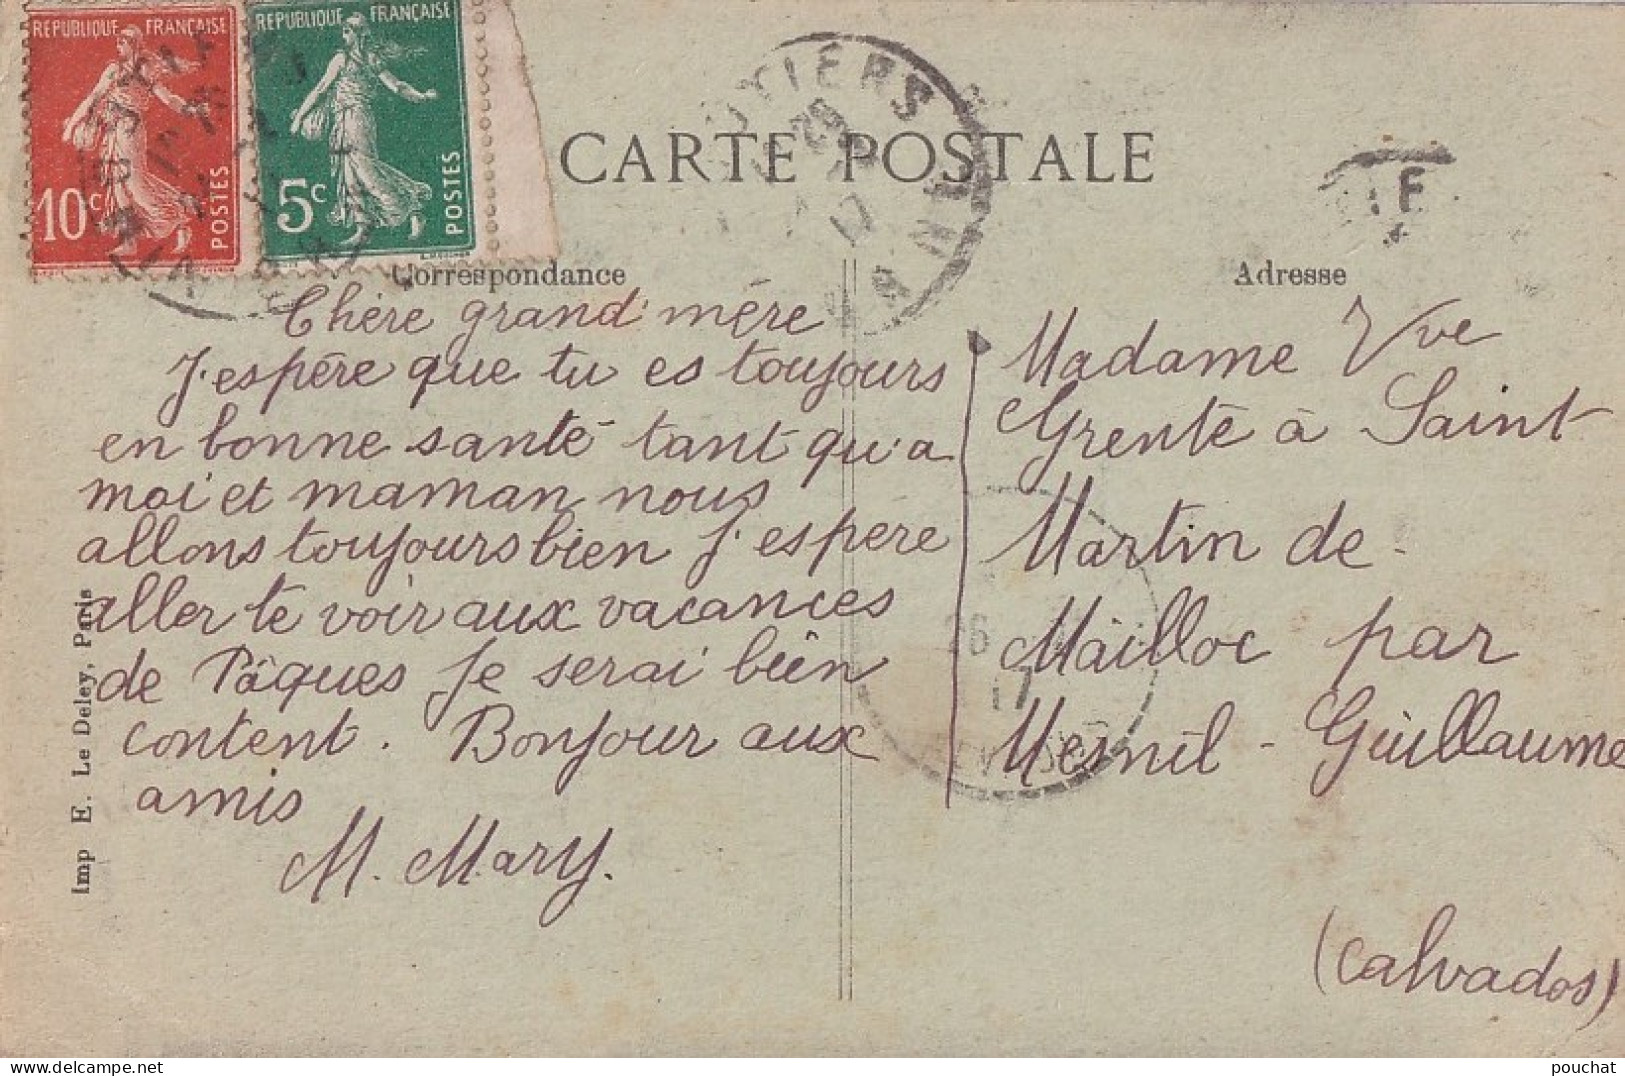 REPUBLIQUE FRANÇAISE
10c POSTES
REPUBLIQUE FRANÇAISE
5c POSTES
CARTE POSTALE
Correspondance
Chère grand'mère
J'espère que tu es toujours
en bonne santé tant qu'a
moi et maman nous
allons toujours bien J'espère
aller te voir aux vacances
de Pâques Je serai bien
content. Bonjour aux
amis
M. Mary.
Adresse
Madame Vve
Grenté à Saint
Martin de
Mailloc par
Mesnil - Guillaume
(Calvados)
Imp E. Le Deley, Paris
26
17
pouchat